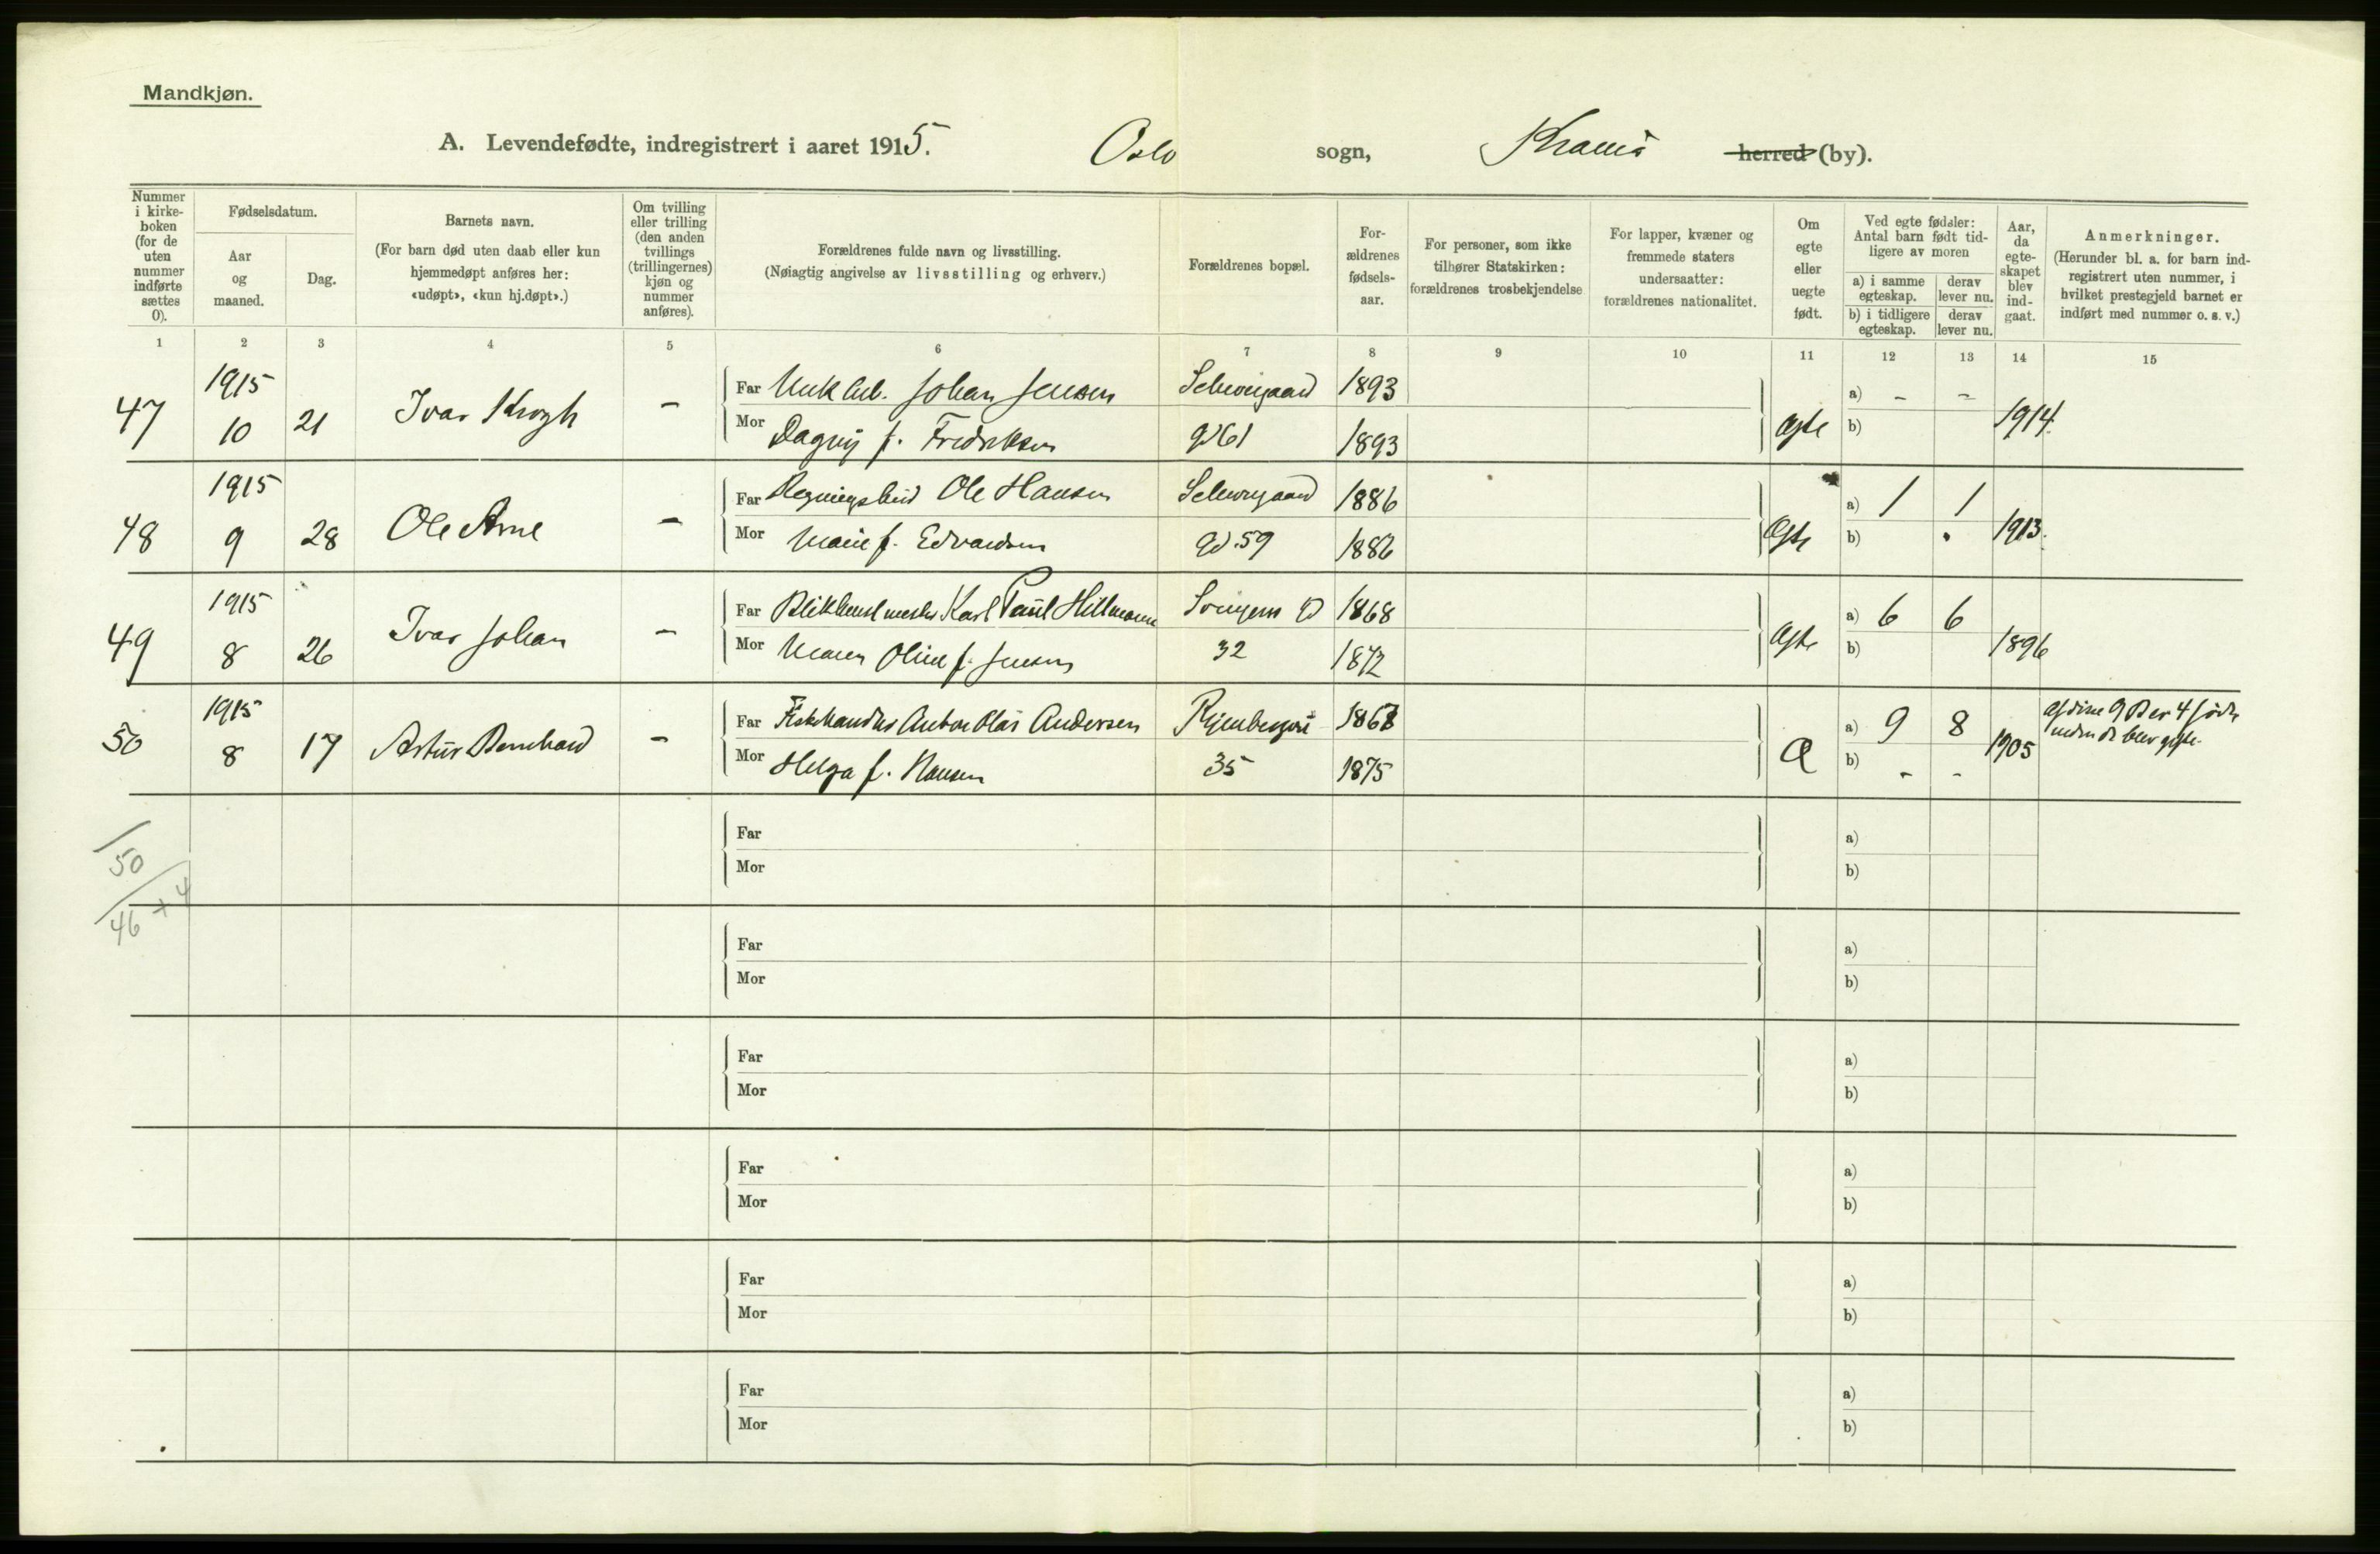 Mandkjøn.
A. Levendefødte, indregistrert i aaret 1915. Oslo sogn, Krania herred (by).
Nummer i kirke-boken (for de uten nummer indførte sættes 0).
Fødselsdatum.
Aar og maaned.
Dag.
Barnets navn.
(For barn død uten daab eller kun hjemmedøpt anføres her: «udøpt», «kun hj.døpt».)
Om tvilling eller trilling (den anden tvillings (trillingernes) kjøn og nummer anføres).
Forældrenes fulde navn og livsstilling.
(Nøiagtig angivelse av livsstilling og erhverv.)
Forældrenes bopæl.
For-ældrenes fødsels-aar.
For personer, som ikke tilhører Statskirken: forældrenes trosbekjendelse
For lapper, kvæner og fremmede staters undersaatter: forældrenes nationalitet.
Om egte eller uegte født.
Ved egte fødsler: Antal barn født tid-ligere av moren
a) i samme egteskap.
derav lever nu.
b) i tidligere egteskap.
derav lever nu.
Aar, da egte-skapet blev ind-gaat.
Anmerkninger.
(Herunder bl. a. for barn ind-registrert uten nummer, i hvilket prestegjeld barnet er indført med nummer o. s. v.)
1 2 3 4 5 6 7 8 9 10 11 12 13 14 15
47 1915 10 21 Ivar Krogh - Far Johan Jensen 1893 a) - -
Mor Dagny f. Fredriksen 61 1893 Egte b) 1914.
48 1915 9 28 Ole Arne - Far Ole Hansen 1886 a) 1 1
Mor Marie f. Edvardsen 59 1886 Egte b) 1913.
49 1915 8 26 Ivar Johan - Far Karl Paul Hillmann 1868 a) 6 6
Mor Maren Oline f. Jensen 32 1872 Egte b) 1896
50 1915 8 17 Artur Bernhard - Far Fiskehandler Anton Olas Andersen 1868 a) 9 8 Af disse 9 B er 4 født
Mor Helga f. Hansen 35 1875 b) - - 1905 inden de blev gifte.
50
46 + 4
Far a)
Mor b)
Far a)
Mor b)
Far a)
Mor b)
Far a)
Mor b)
Far a)
Mor b)
Far a)
Mor b)